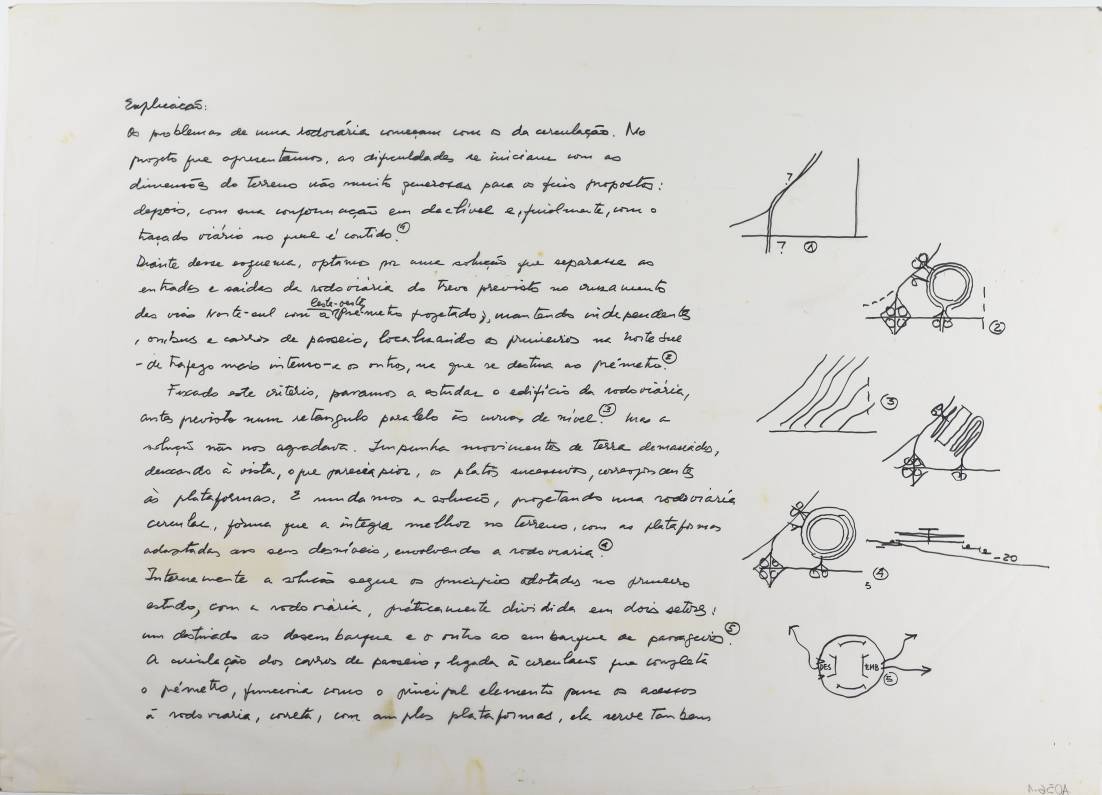 Explicação:
Os problemas de uma rodoviária começam com o da circulação. No
projeto que apresentamos, as dificuldades se iniciam com as
dimensões do terreno não muito generosas para os fins propostos;
depois, com sua conformação em declível e, finalmente, com o
traçado viário no qual é contido. ①
Diante desse esquema, optamos por uma solução que separasse as
entradas e saídas da rodoviária do trevo previsto no cruzamento
das vias Norte-sul com a leste-oeste (pré-metro projetado), mantendo independentes
, onibus e carros de passeio, localizando os primeiros na Norte Sul
- de trafego mais intenso - e os outros, na que se destina ao pré-metro. ②
Fixado este critério, passamos a estudar o edifício da rodoviária,
antes previsto num retangulo paralelo às curvas de nível. ③ Mas a
solução não nos agradava. Impunha movimentos de terra demasiados,
deixando à vista, o que parecia pior, os platos sucessivos, correspondentes
às plataformas. E mudamos a solução, projetando uma rodoviária
circular, forma que a integra melhor no terreno, com as plataformas
adaptadas aos seus desníveis, envolvendo a rodoviaria. ④
Internamente a solução segue os princípios adotados no primeiro
estudo, com a rodoviária, práticamente dividida em dois setores:
um destinado ao desembarque e o outro ao embarque de passageiros. ⑤
A circulação dos carros de passeio, ligada à circulação que completa
o pré-metro, funciona como o principal elemento para os acessos
à rodoviaria, correta, com amplas plataformas, ela serve tambem
? ? ①
②
③
④
5
-20
DES EMB ⑤